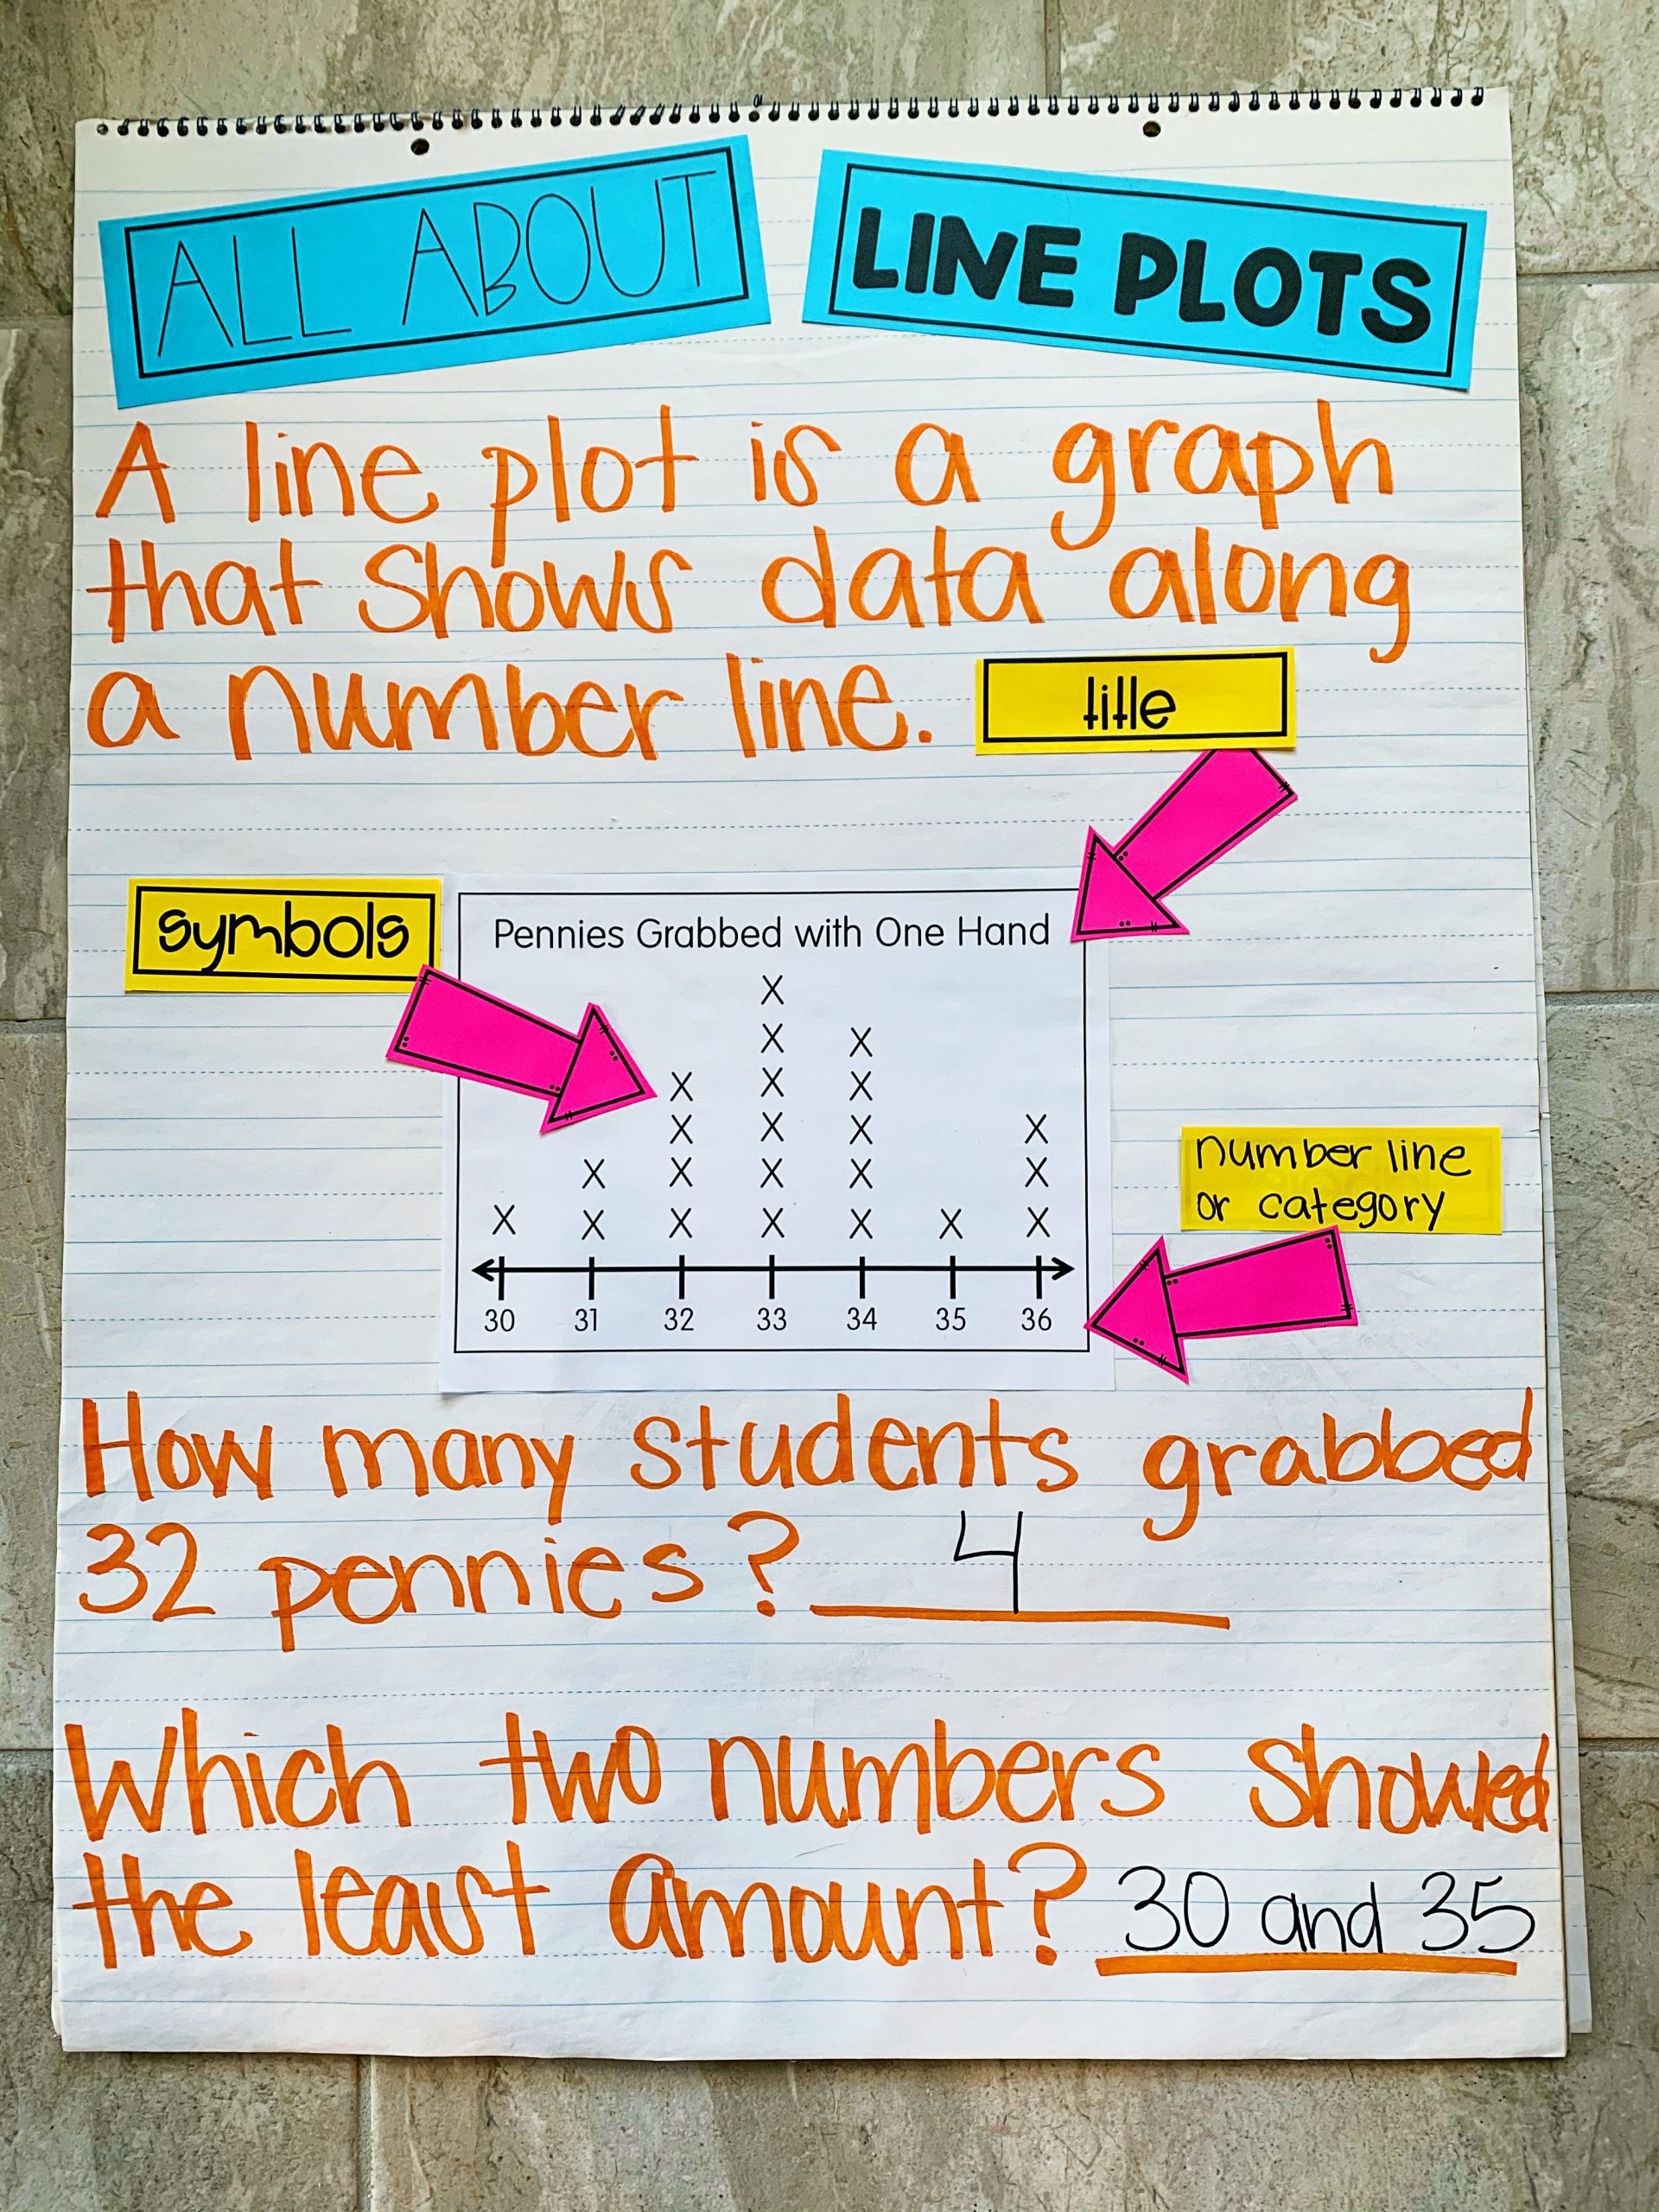 ALL ABOUT LINE PLOTS
A line plot is a graph
that shows data along
a number line.
title
symbols
Pennies Grabbed with One Hand
X
X X
X X X
X X X X
X X X X X
X X X X X X X
30 31 32 33 34 35 36
number line
or category
How many students grabbed
32 pennies? 4
Which two numbers showed
the least amount? 30 and 35